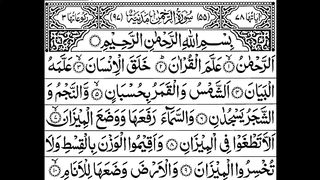 اٰیاتہا ٧٨ (٥٥) سُوْرَةُ الرَّحْمٰنِ مَدَنِیَّةٌ (٩٧) رکوعاتہا ٣
بِسْمِ اللّٰهِ الرَّحْمٰنِ الرَّحِیْمِ
اَلرَّحْمٰنُ ۙ١ عَلَّمَ الْقُرْاٰنَ ؕ٢ خَلَقَ الْاِنْسَانَ ۙ٣ عَلَّمَهُ
الْبَیَانَ ٤ اَلشَّمْسُ وَالْقَمَرُ بِحُسْبَانٍ ٥ وَّالنَّجْمُ وَ
الشَّجَرُ یَسْجُدٰنِ ٦ وَالسَّمَآءَ رَفَعَهَا وَوَضَعَ الْمِیْزَانَ ٧
اَلَّا تَطْغَوْا فِی الْمِیْزَانِ ٨ وَاَقِیْمُوا الْوَزْنَ بِالْقِسْطِ وَلَا
تُخْسِرُوا الْمِیْزَانَ ٩ وَالْاَرْضَ وَضَعَهَا لِلْاَنَامِ ١٠